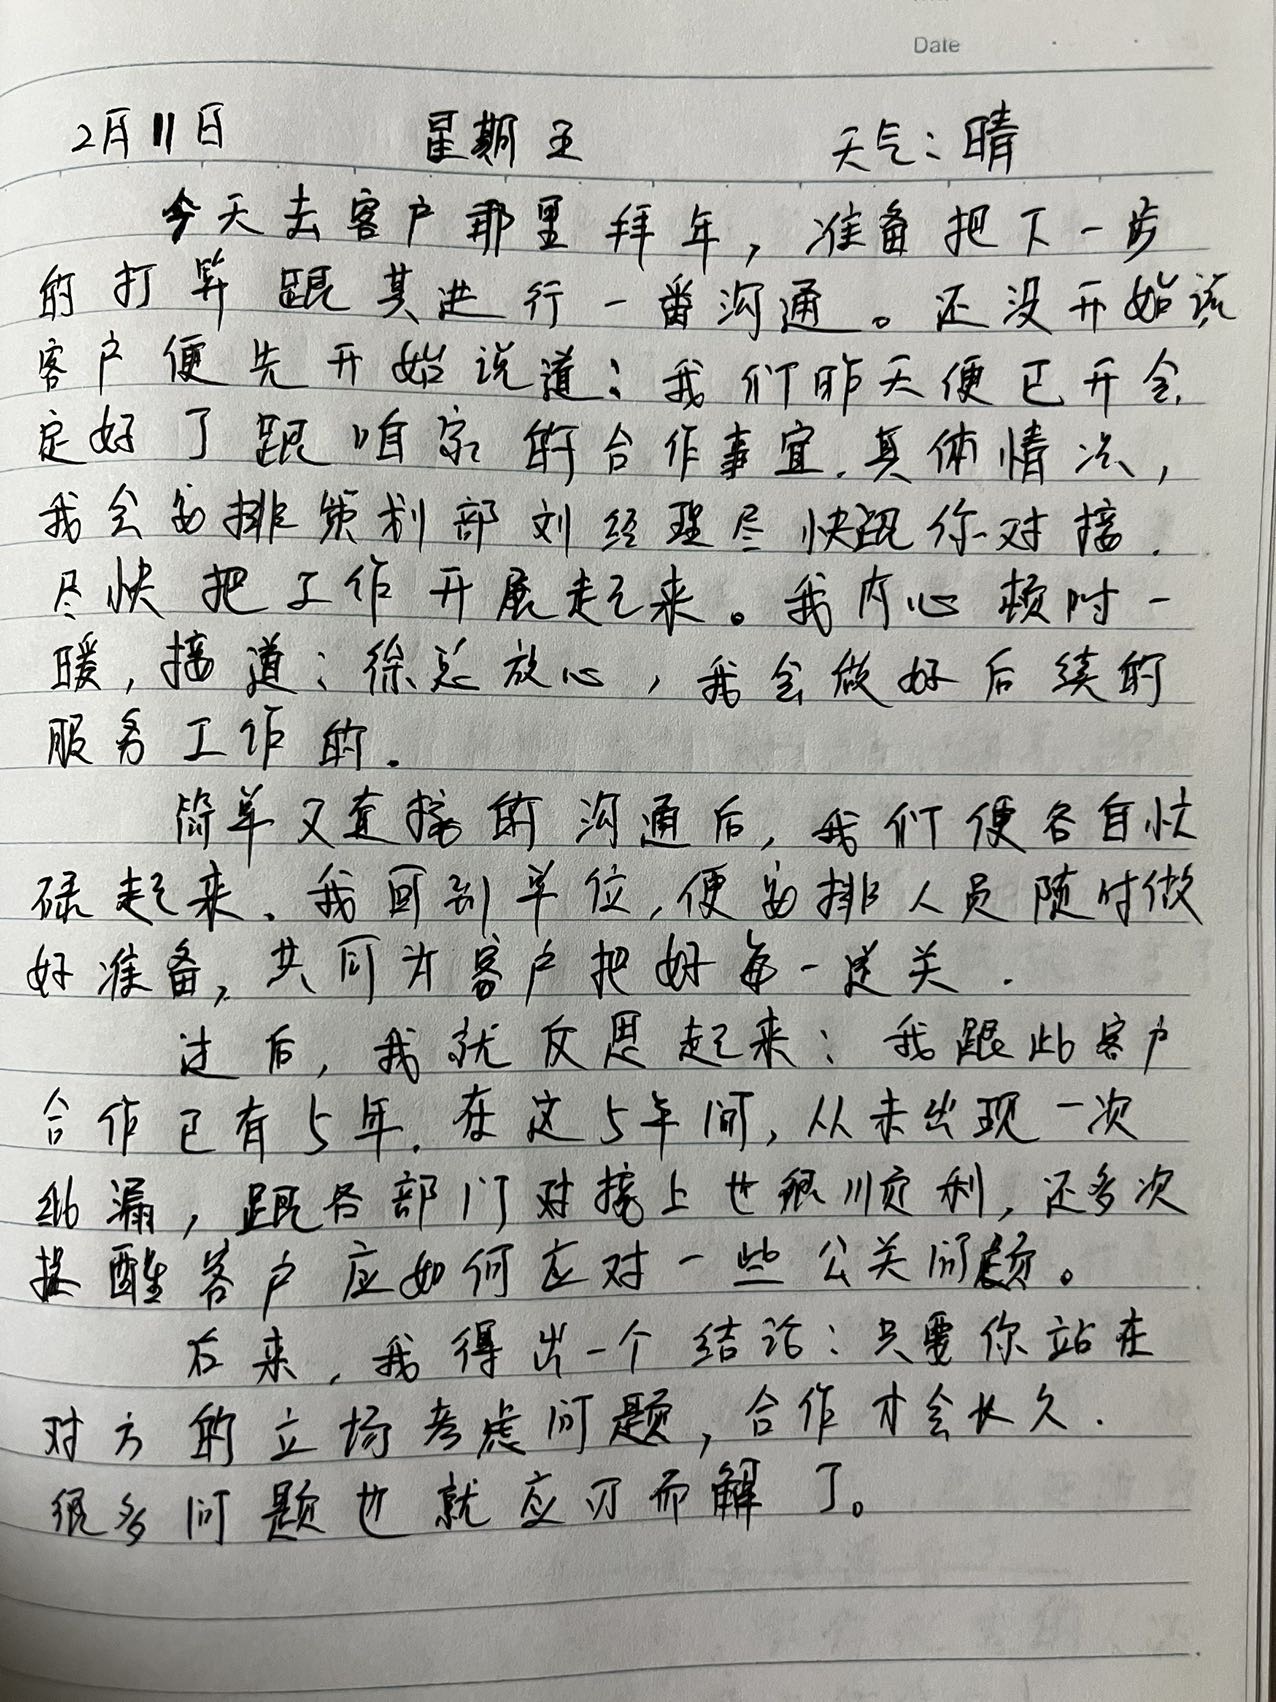 Date
2月11日 星期五 天气：晴
今天去客户那里拜年，准备把下一步
的打算跟其进行一番沟通。还没开始说
客户便先开始说道：我们昨天便已开会
定好了跟咱家的合作事宜.具体情况，
我会安排策划部刘经理尽快跟你对接.
尽快把工作开展起来。我内心顿时一
暖，接道：徐总放心，我会做好后续的
服务工作的.
简单又直接的沟通后，我们便各自忙
碌起来.我回到单位，便安排人员随时做
好准备，共同为客户把好每一道关.
过后，我就反思起来：我跟此客户
合作已有5年.在这5年间，从未出现一次
纰漏，跟各部门对接上也很顺利，还多次
提醒客户应如何应对一些公关问题。
后来，我得出一个结论：只要你站在
对方的立场考虑问题，合作才会长久.
很多问题也就应刃而解了。